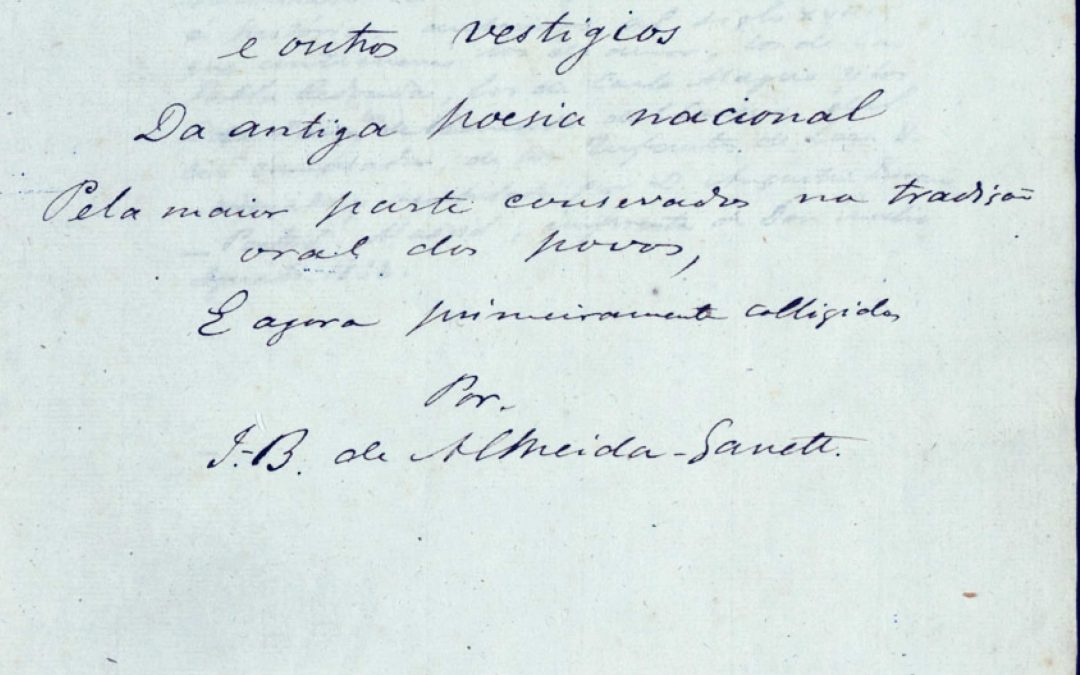 e outros vestigios
Da antiga poesia nacional
Pela maior parte conservados na tradição
oral dos povos,
E agora primeiramente colligidos
Por.
J.-B. de Almeida-Garrett.